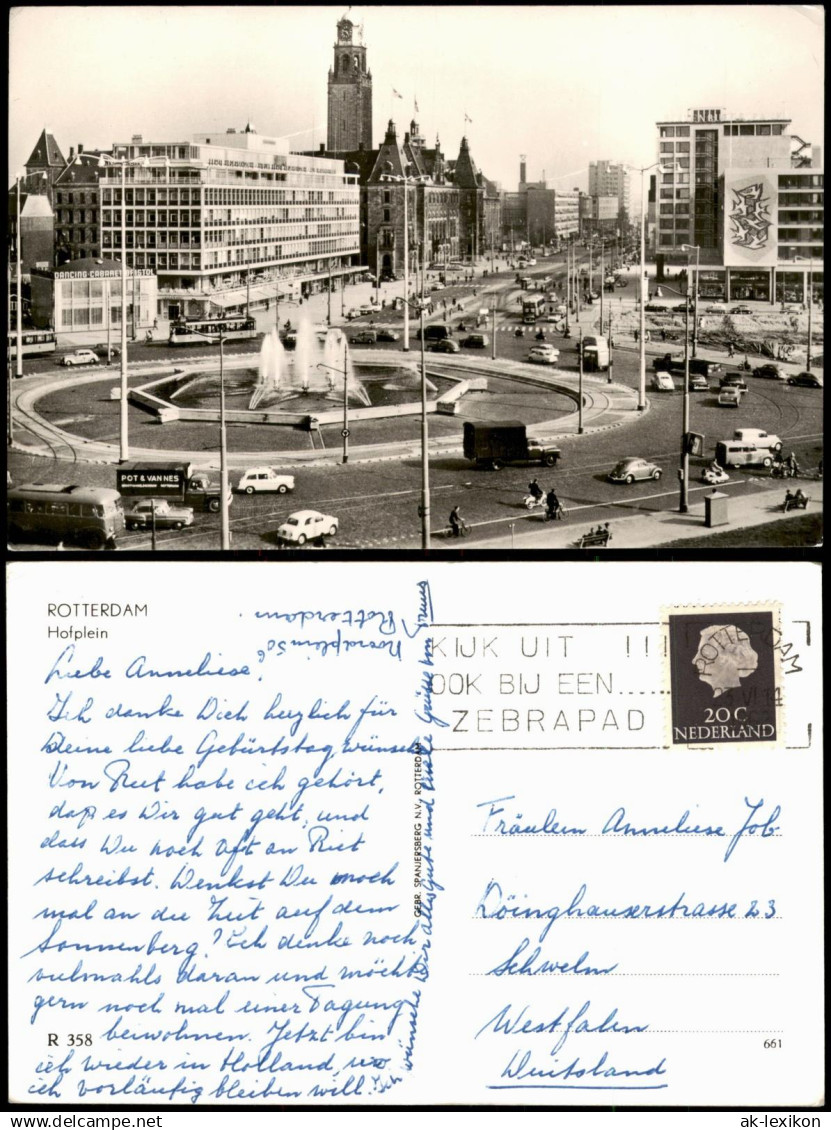 DANCING-CABARET CRISTOL
POT & VAN NES
ROTTERDAM
Hofplein
Noordplein 50c
Rotterdam.
Liebe Anneliese,
Ich danke Dich herzlich für
Deine liebe Gebürtstag wünsche
Von Riet habe ich gehört,
daß es Dir gut geht, und
dass Du noch oft an Riet
schreibst. Denkst Du noch
mal an die Zeit auf dem
Sonnenberg? Ich denke noch
vielmahls daran und möcht
gern noch mal einer Tagung
R 358 beiwohnen. Jetzt bin
ich wieder in Holland, wo
ich vorläufig bleiben will. Ich
wünsche Dir alles Gute und viele Grüsse von
GEBR. SPANJERSBERG N.V. ROTTERDAM
KIJK UIT !!!
OOK BIJ EEN......
ZEBRAPAD
ROTTERDAM
20 C
NEDERLAND
Fräulein Anneliese Job
Döinghauserstrasse 23
Schwelm
Westfalen
Duitsland
661
ak-ansichtskarten.de
ak-lexikon